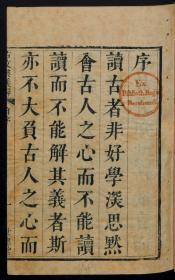 序
讀古者非好學深思默
會古人之心而不能讀
讀而不能解其義者斯
亦不大負古人之心而
Ex
Biblioth. Regia
Berolinensi